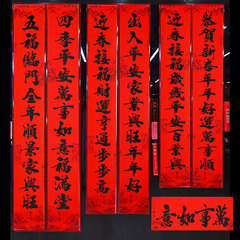 恭賀新喜年年好運
迎春接福歲歲平安百業興
出入平安家業興旺年年好
迎春接福財運亨通步步高
四季平安萬事如意福滿堂
五福臨門全年順景家興旺
萬事如意